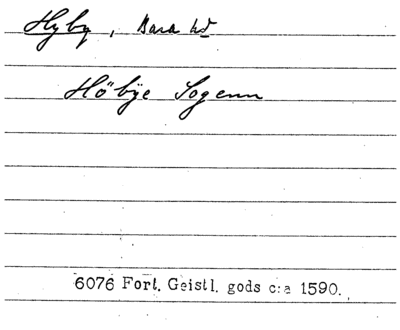 Hyby, Bara hd
Höbÿe Sogenn
6076 Fort. Geistl. gods c:a 1590.